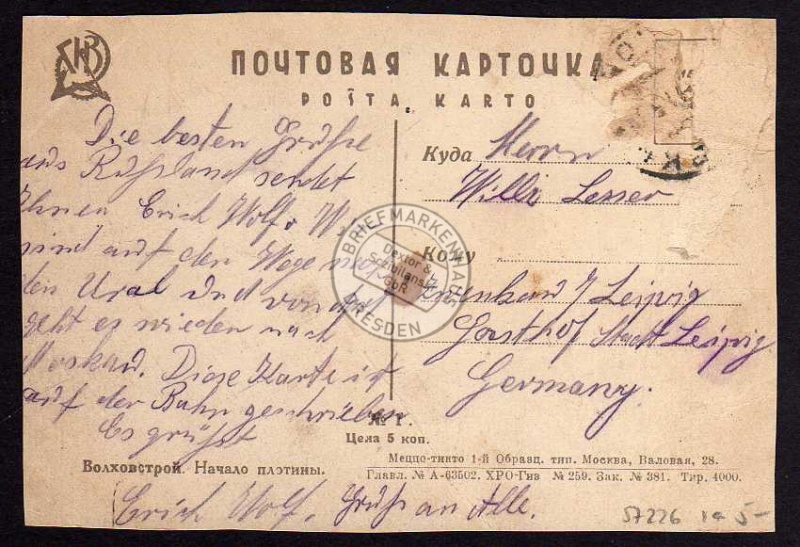 ПОЧТОВАЯ КАРТОЧКА
POŜTA KARTO
Die besten Grüße
aus Rußland sendet
Ihnen Erich Wolf. Wir
sind auf dem Wege nach
den Ural und von dort
geht es wieder nach
Moskau. Diese Karte ist
auf der Bahn geschrieben
Es grüßt
Erich Wolf. Gruß an Alle.
Куда
Herrn
Willi Lesser
Кому
Leipzig
Gasthof Stadt Leipzig
Germany.
№ 1.
Цена 5 коп.
Волховстрой. Начало плотины.
Меццо-тинто 1-й Образц. тип. Москва, Валовая, 28.
Главл. № А-63502. ХРО-Гиз № 259. Зак. № 381. Тир. 4000.
BRIEFMARKENHAUS
Dexler &
GbR
DRESDEN
57226
5-